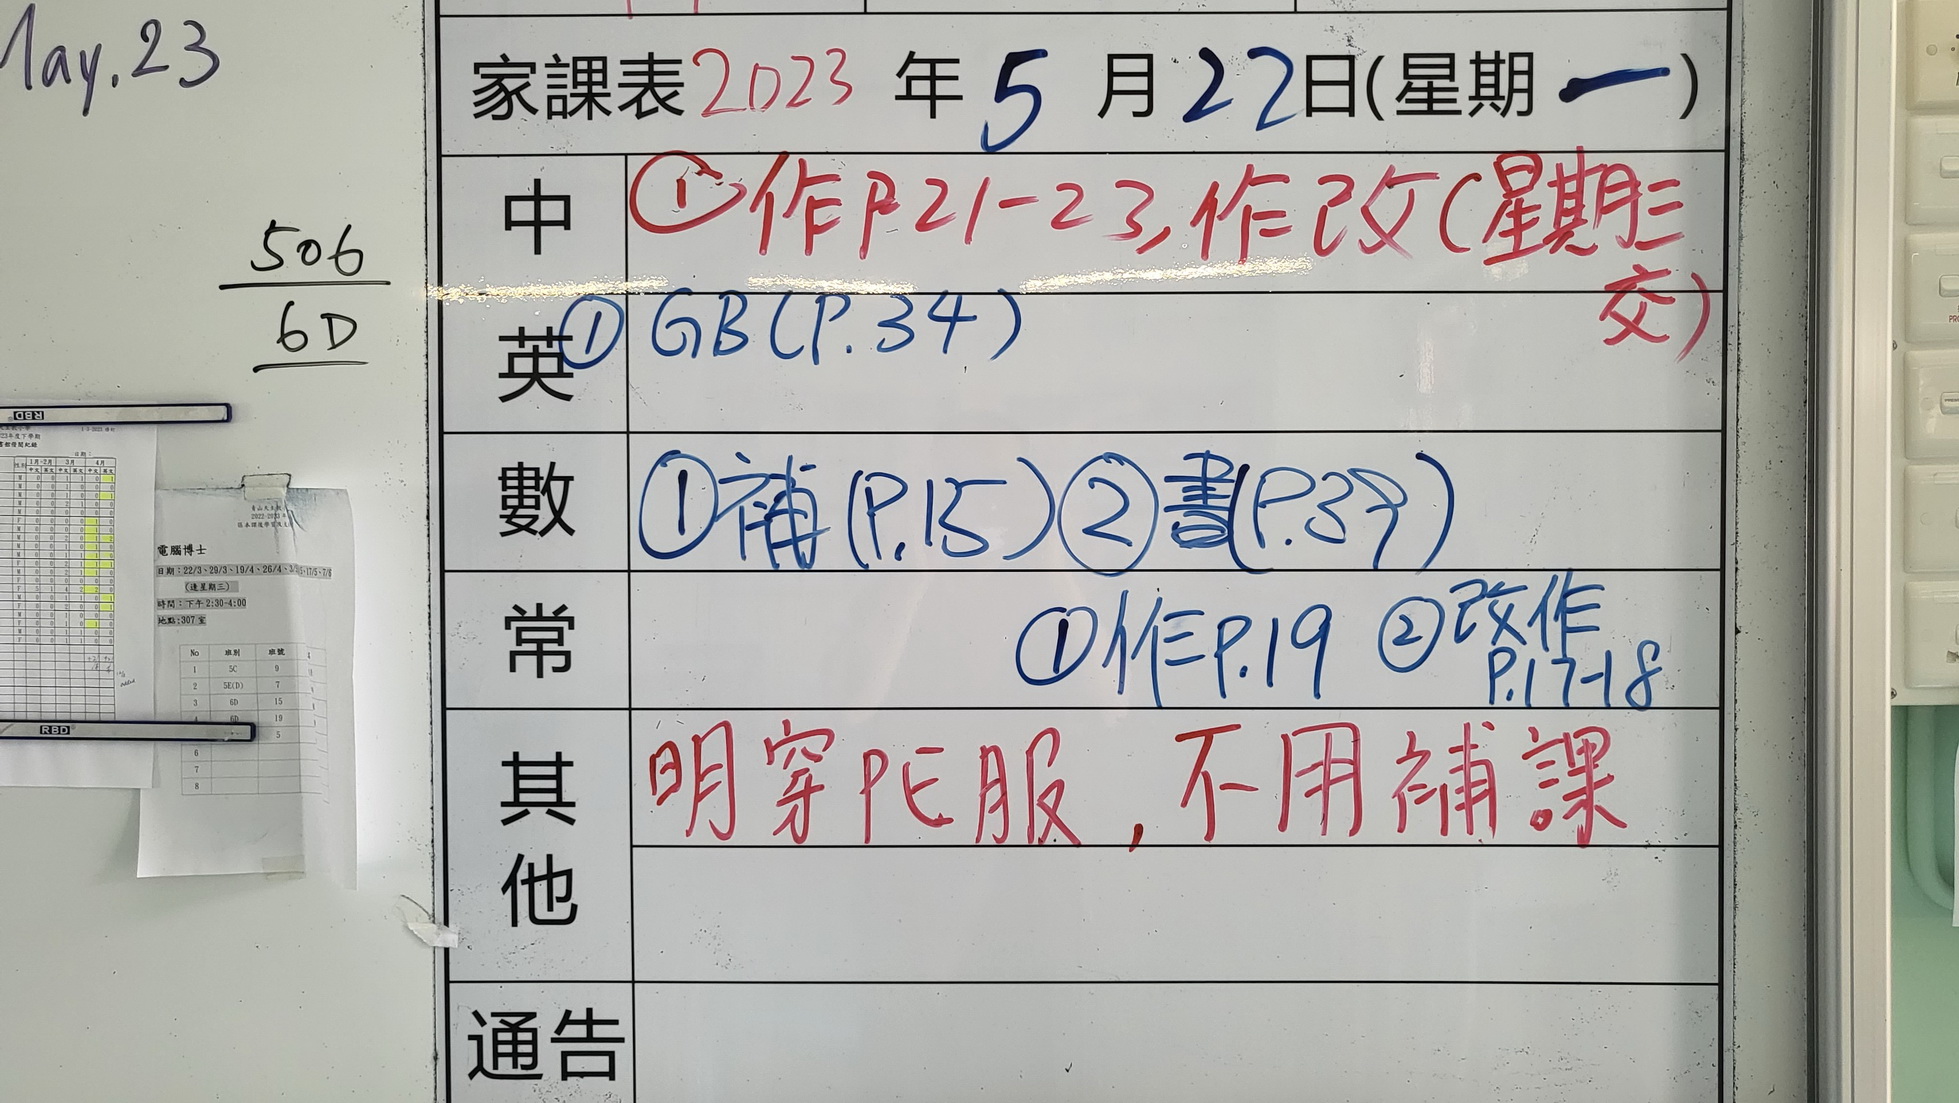 May.23
506
6D
家課表2023年5月22日(星期一)
中
①作P.21-23,作改(星期三
交)
英
①GB(P.34)
數
①補(P.15)②書(P.39)
常
①作P.19 ②改作
P.17-18
其他
明穿PE服,不用補課
通告
RBD
RBD
電腦博士
日期:22/3、29/3、19/4、26/4、
(逢星期三)
時間:下午2:30-4:00
地點:307室
No 班別 班號
1 5C 9
2 5E(D) 7
3 6D 15
4 6D 19
5
6
7
8